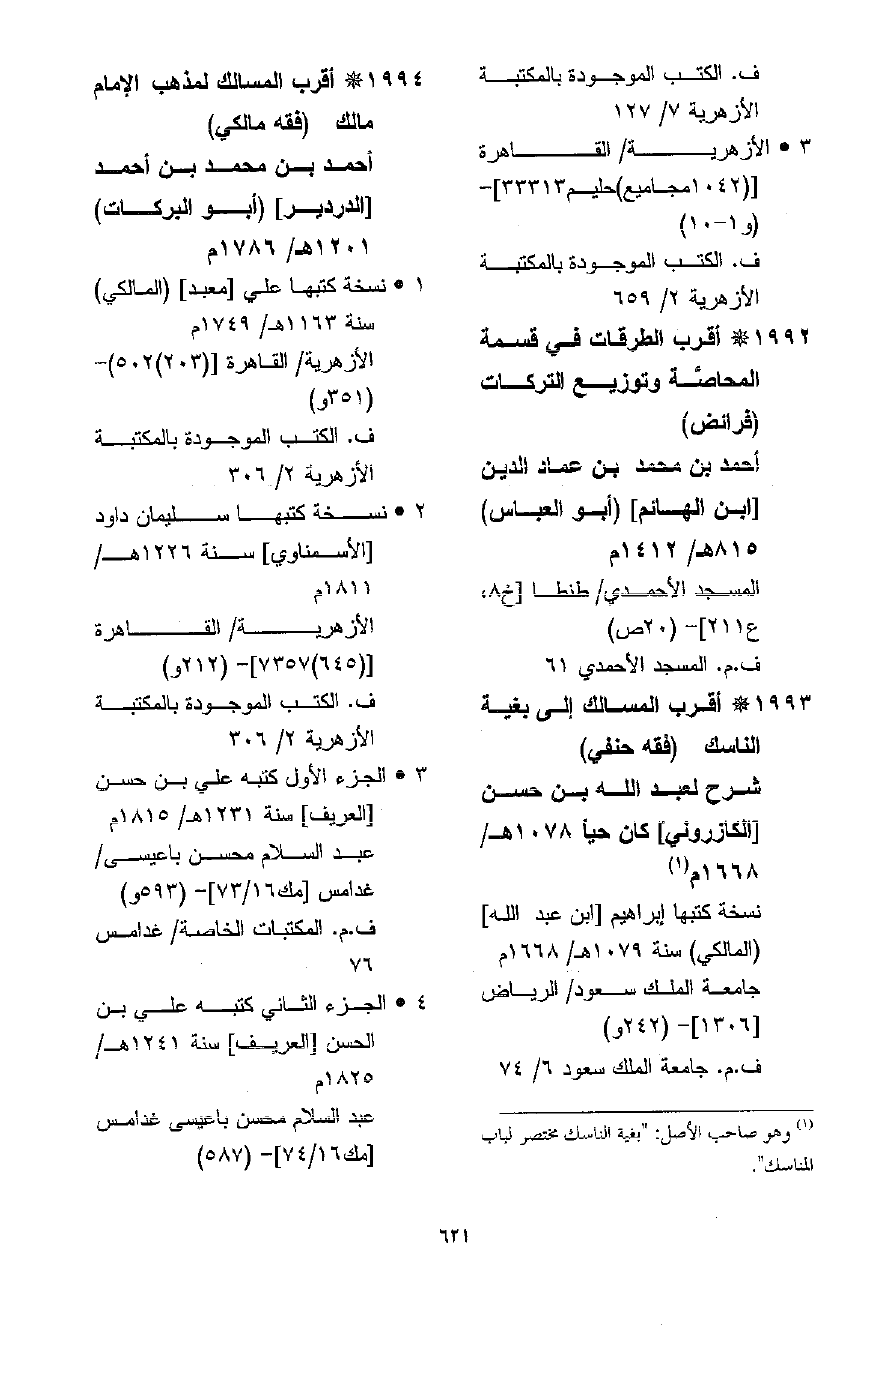 ف. الكتب الموجودة بالمكتبة
الأزهرية ٧/ ١٢٧
٣ • الأزهرية/ القاهرة
[(١٠٤٢مجاميع)حليم٣٣٣١٣]-
(و١-١٠)
ف. الكتب الموجودة بالمكتبة
الأزهرية ٢/ ٦٥٩
١٩٩٢* أقرب الطرقات في قسمة
المحاصَّة وتوزيع التركات
(فرائض)
أحمد بن محمد بن عماد الدين
[ابن الهائم] (أبو العباس)
٨١٥هـ/ ١٤١٢م
المسجد الأحمدي/ طنطا [خ٨،
ع٢١١]- (٢٠ص)
ف.م. المسجد الأحمدي ٦١
١٩٩٣* أقرب المسالك إلى بغية
الناسك (فقه حنفي)
شرح لعبد الله بن حسن
[الكازروني] كان حياً ١٠٧٨هـ/
١٦٦٨م(١)
نسخة كتبها إبراهيم [ابن عبد الله]
(المالكي) سنة ١٠٧٩هـ/ ١٦٦٨م
جامعة الملك سعود/ الرياض
[١٣٠٦]- (٢٤٢و)
ف.م. جامعة الملك سعود ٦/ ٧٤
(١) وهو صاحب الأصل: "بغية الناسك مختصر لباب
المناسك".
١٩٩٤* أقرب المسالك لمذهب الإمام
مالك (فقه مالكي)
أحمد بن محمد بن أحمد
[الدردير] (أبو البركات)
١٢٠١هـ/ ١٧٨٦م
١ • نسخة كتبها علي [معبد] (المالكي)
سنة ١١٦٣هـ/ ١٧٤٩م
الأزهرية/ القاهرة [(٢٠٣)٥٠٢]-
(٣٥١و)
ف. الكتب الموجودة بالمكتبة
الأزهرية ٢/ ٣٠٦
٢ • نسخة كتبها سليمان داود
[الأسمناوي] سنة ١٢٢٦هـ/
١٨١١م
الأزهرية/ القاهرة
[(٦٤٥)٧٣٥٧]- (٢١٢و)
ف. الكتب الموجودة بالمكتبة
الأزهرية ٢/ ٣٠٦
٣ • الجزء الأول كتبه علي بن حسن
[العريف] سنة ١٢٣١هـ/ ١٨١٥م
عبد السلام محسن باعيسى/
غدامس [مك٧٣/١٦]- (٥٩٣و)
ف.م. المكتبات الخاصة/ غدامس
٧٦
٤ • الجزء الثاني كتبه علي بن
الحسن [العريف] سنة ١٢٤١هـ/
١٨٢٥م
عبد السلام محسن باعيسى غدامس
[مك٧٤/١٦]- (٥٨٧)
٦٢١